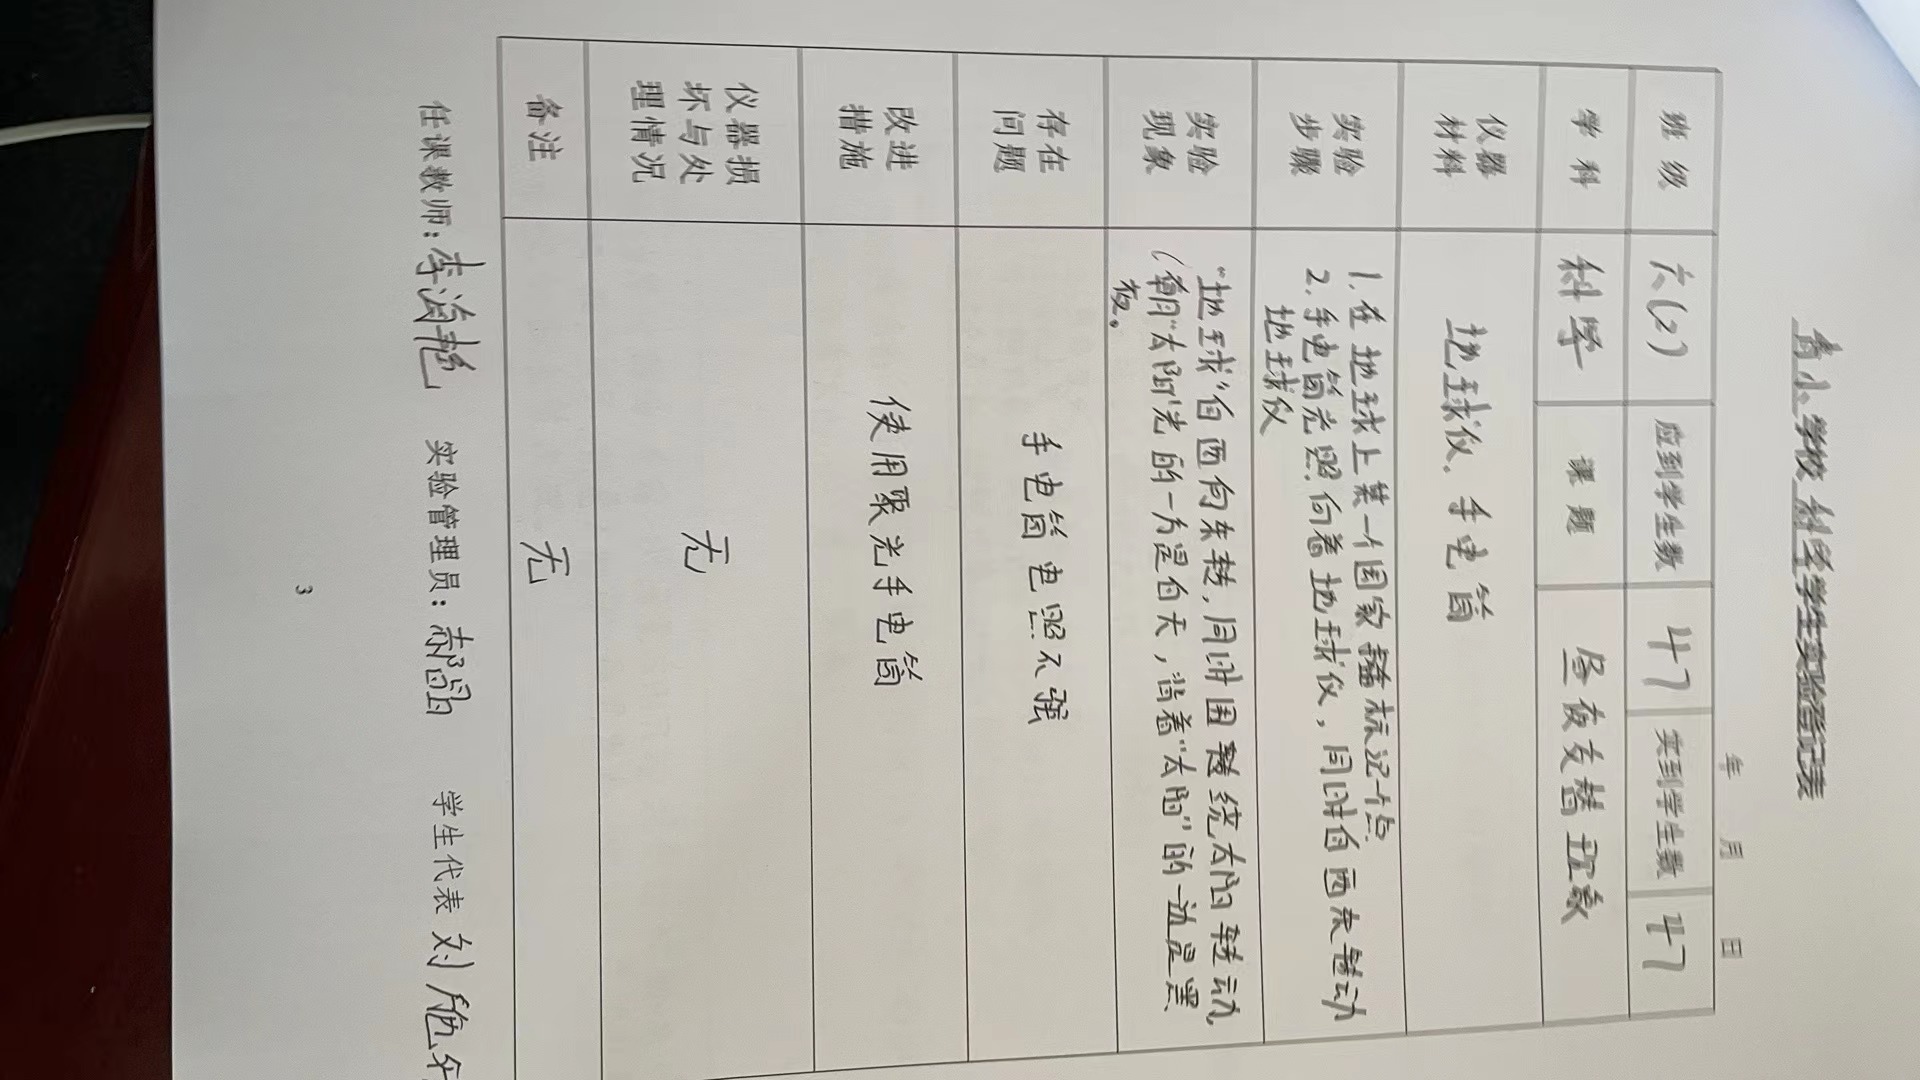 小学校 科学学生实验登记表
年 月 日
班级 六(2) 应到学生数 47 实到学生数 47
学科 科学 课题 昼夜交替现象
仪器
材料
地球仪、手电筒
实验
步骤
1. 在地球上某一个国家 标记一个点
2. 手电筒光照向着地球仪，同时自西末转动
地球仪
实验
现象
"地球"自西向东转，同时围 绕太阳转动，
(朝"太阳"光的一方是白天，背着"太阳"的一边是黑
夜。
存在
问题
手电筒电照不强
改进
措施
使用聚光手电筒
仪器损
坏与处
理情况
无
备注
无
任课教师：李 艳 实验管理员：郝 学生代表 刘
3